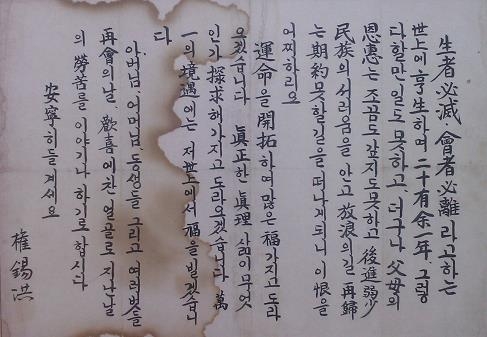 生者必滅 會者必離 라고하는
世上에 享生하며 二十有余年, 그렇
다할만 일도 못하고 더구나 父母의
恩惠는 조곰도 갚지도못하고 後進弱少
民族의 서러움을 안고 放浪의길 再歸
는 期約못할길을 떠나게되니 이恨을
어찌하리오
運命을 開拓하여 많은 福 가지고 도라
오겠습니다 眞正한 眞理 삶이무엇
인가 探求허가지고 도라오겠습니다 萬
一의 境遇에는 저世上에서 福을 빌겠습니
다
아버님, 어머님, 동생들 그리고 여러벗들
再會의날, 歡喜에찬 얼골로 지난날
의 勞苦를 이야기나 하기로 합시다
安寧히들 계세요
權錫洪